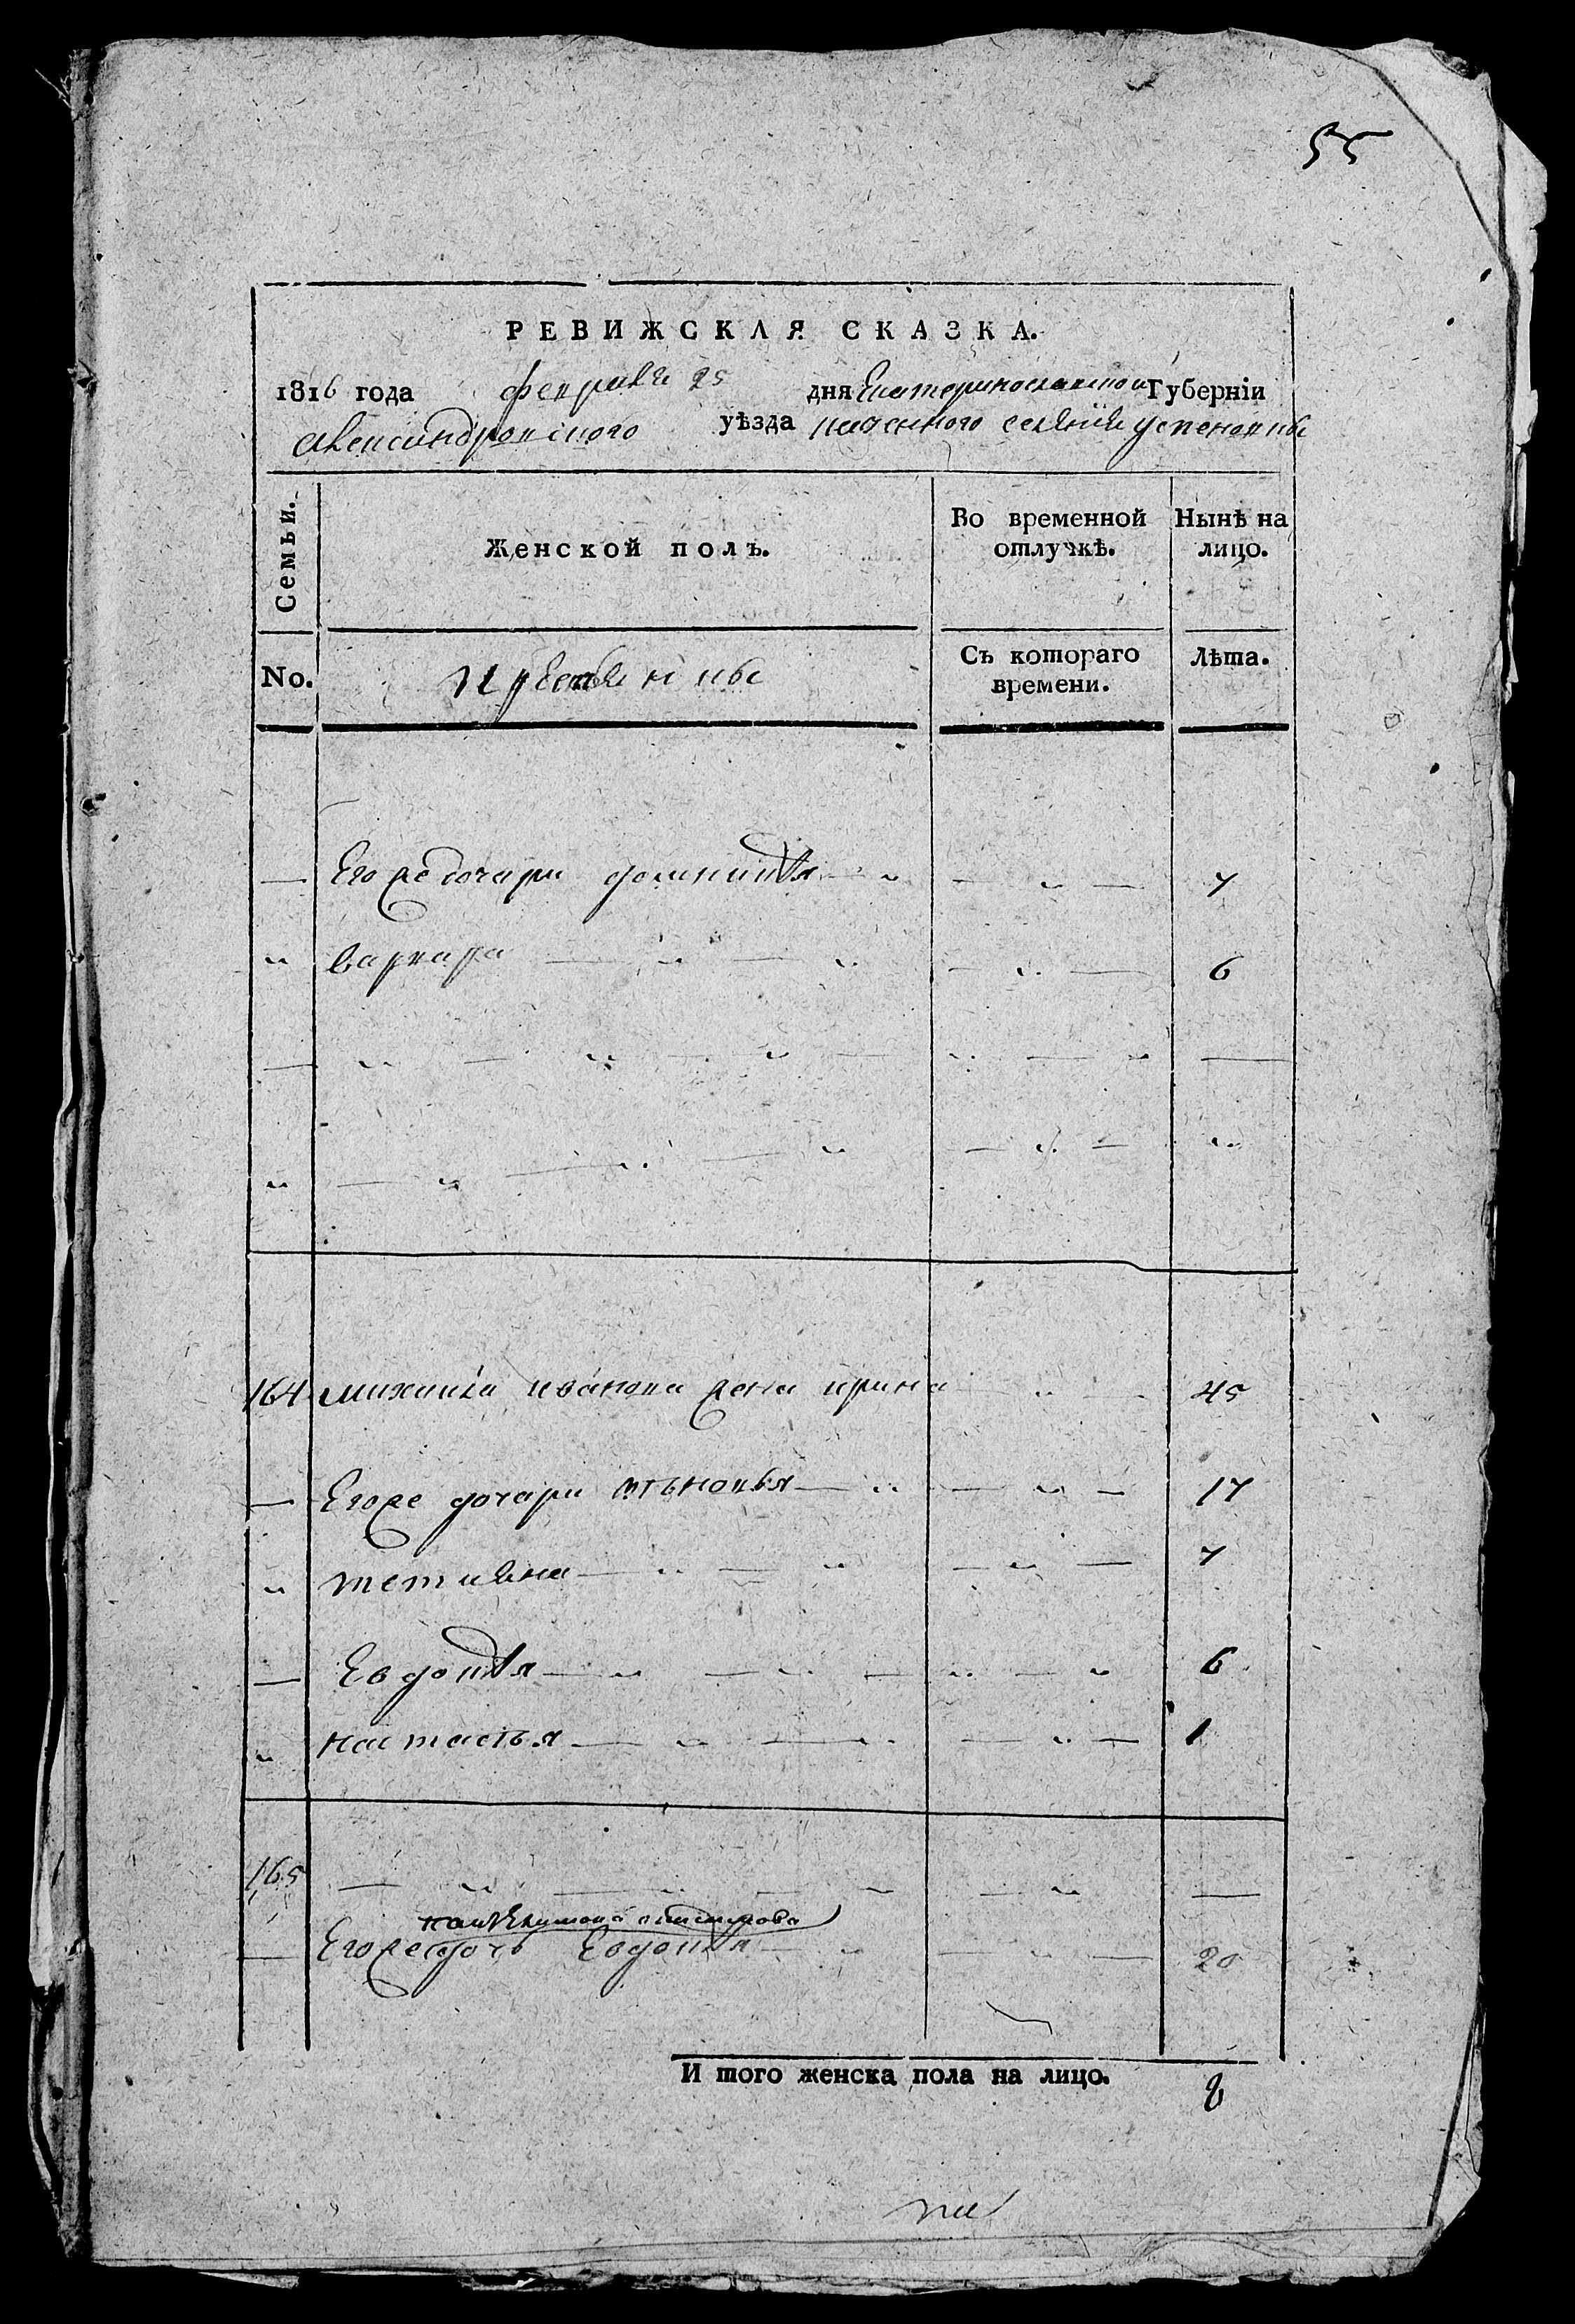 55
РЕВИЖСКАЯ СКАЗКА.
1816 года февраля 25 дня Екатеринославской Губерніи
Александровского уѣзда казенного селения успеновки
Семьи.
Женской полъ.
Во временной отлучкѣ.
Нынѣ на лицо.
No.
Крестьянки
Съ котораго времени.
Лѣта.
Егоже дочери 7
варвара 6
164 михаила иванова жена ирина 45
Егоже дочери 17
тетияна 7
Евдотья 6
настасья 1
165
Егоже дочь Евдотья 20
И того женска пола на лицо. 8